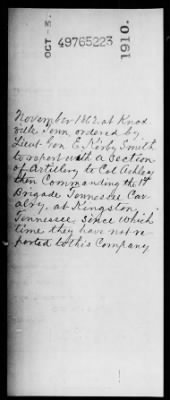 OCT - 5.
49765223
1910.
November 1862 at Knox
ville Tenn ordered by
Lieut Gen E. Kirby Smith
to report with a Section
of Artillery to Col Ashby
then Commanding the 1st
Brigade Tennessee Cav
alry, at Kingston,
Tennessee. Since which
time they have not re
ported to this Company